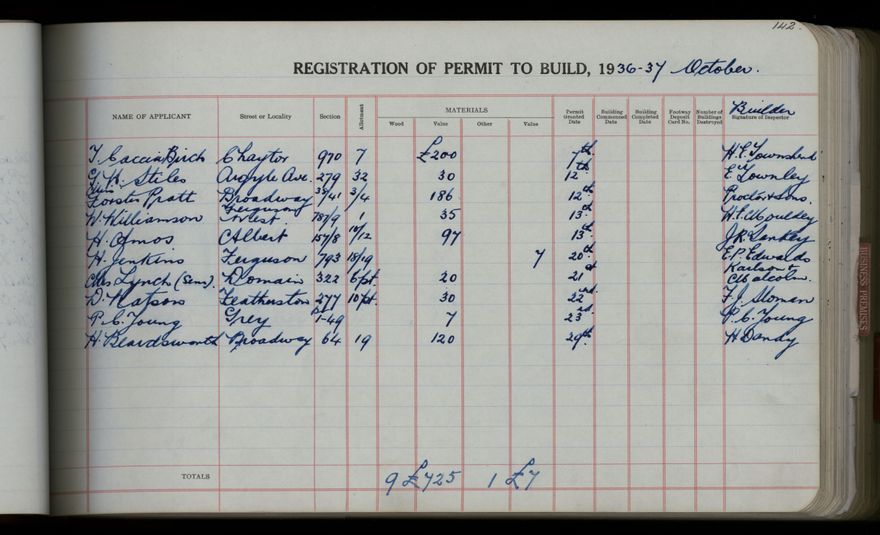 142.
REGISTRATION OF PERMIT TO BUILD, 1936-37 October.
NAME OF APPLICANT Street or Locality Section Allotment MATERIALS Wood Value Other Value Permit Granted Date Building Commenced Date Building Completed Date Footway Deposit Card No. Number of Buildings Destroyed Builder Signature of Inspector
T. Caccia Birch Chaytor 970 7 £200 7th H. E. Townshend
G. H. Stiles Argyle Ave. 279 32 30 12th E. Townley
Forster Pratt Broadway 38/41 3/4 186 12th Proctor & Sons.
W. Williamson Ferguson West 787/9 1 35 13th W. E. Mouldey
H. Amos Albert 157/8 11/12 97 13th J. R. Sankey
H. Jenkins Ferguson 793 18/19 7 20th E. P. Edwards
Chas Lynch (Senr). Domain 322 6 pt. 20 21st Karlson & Malcolm.
D. Watson Featherston 277 10 pt. 30 22nd F. J. Sloman
P. C. Young Grey 1-49 7 23rd P. C. Young
H. Beardsworth Broadway 64 19 120 29th H Dandy
TOTALS 9 £725 1 £7
BUSINESS PREMISES